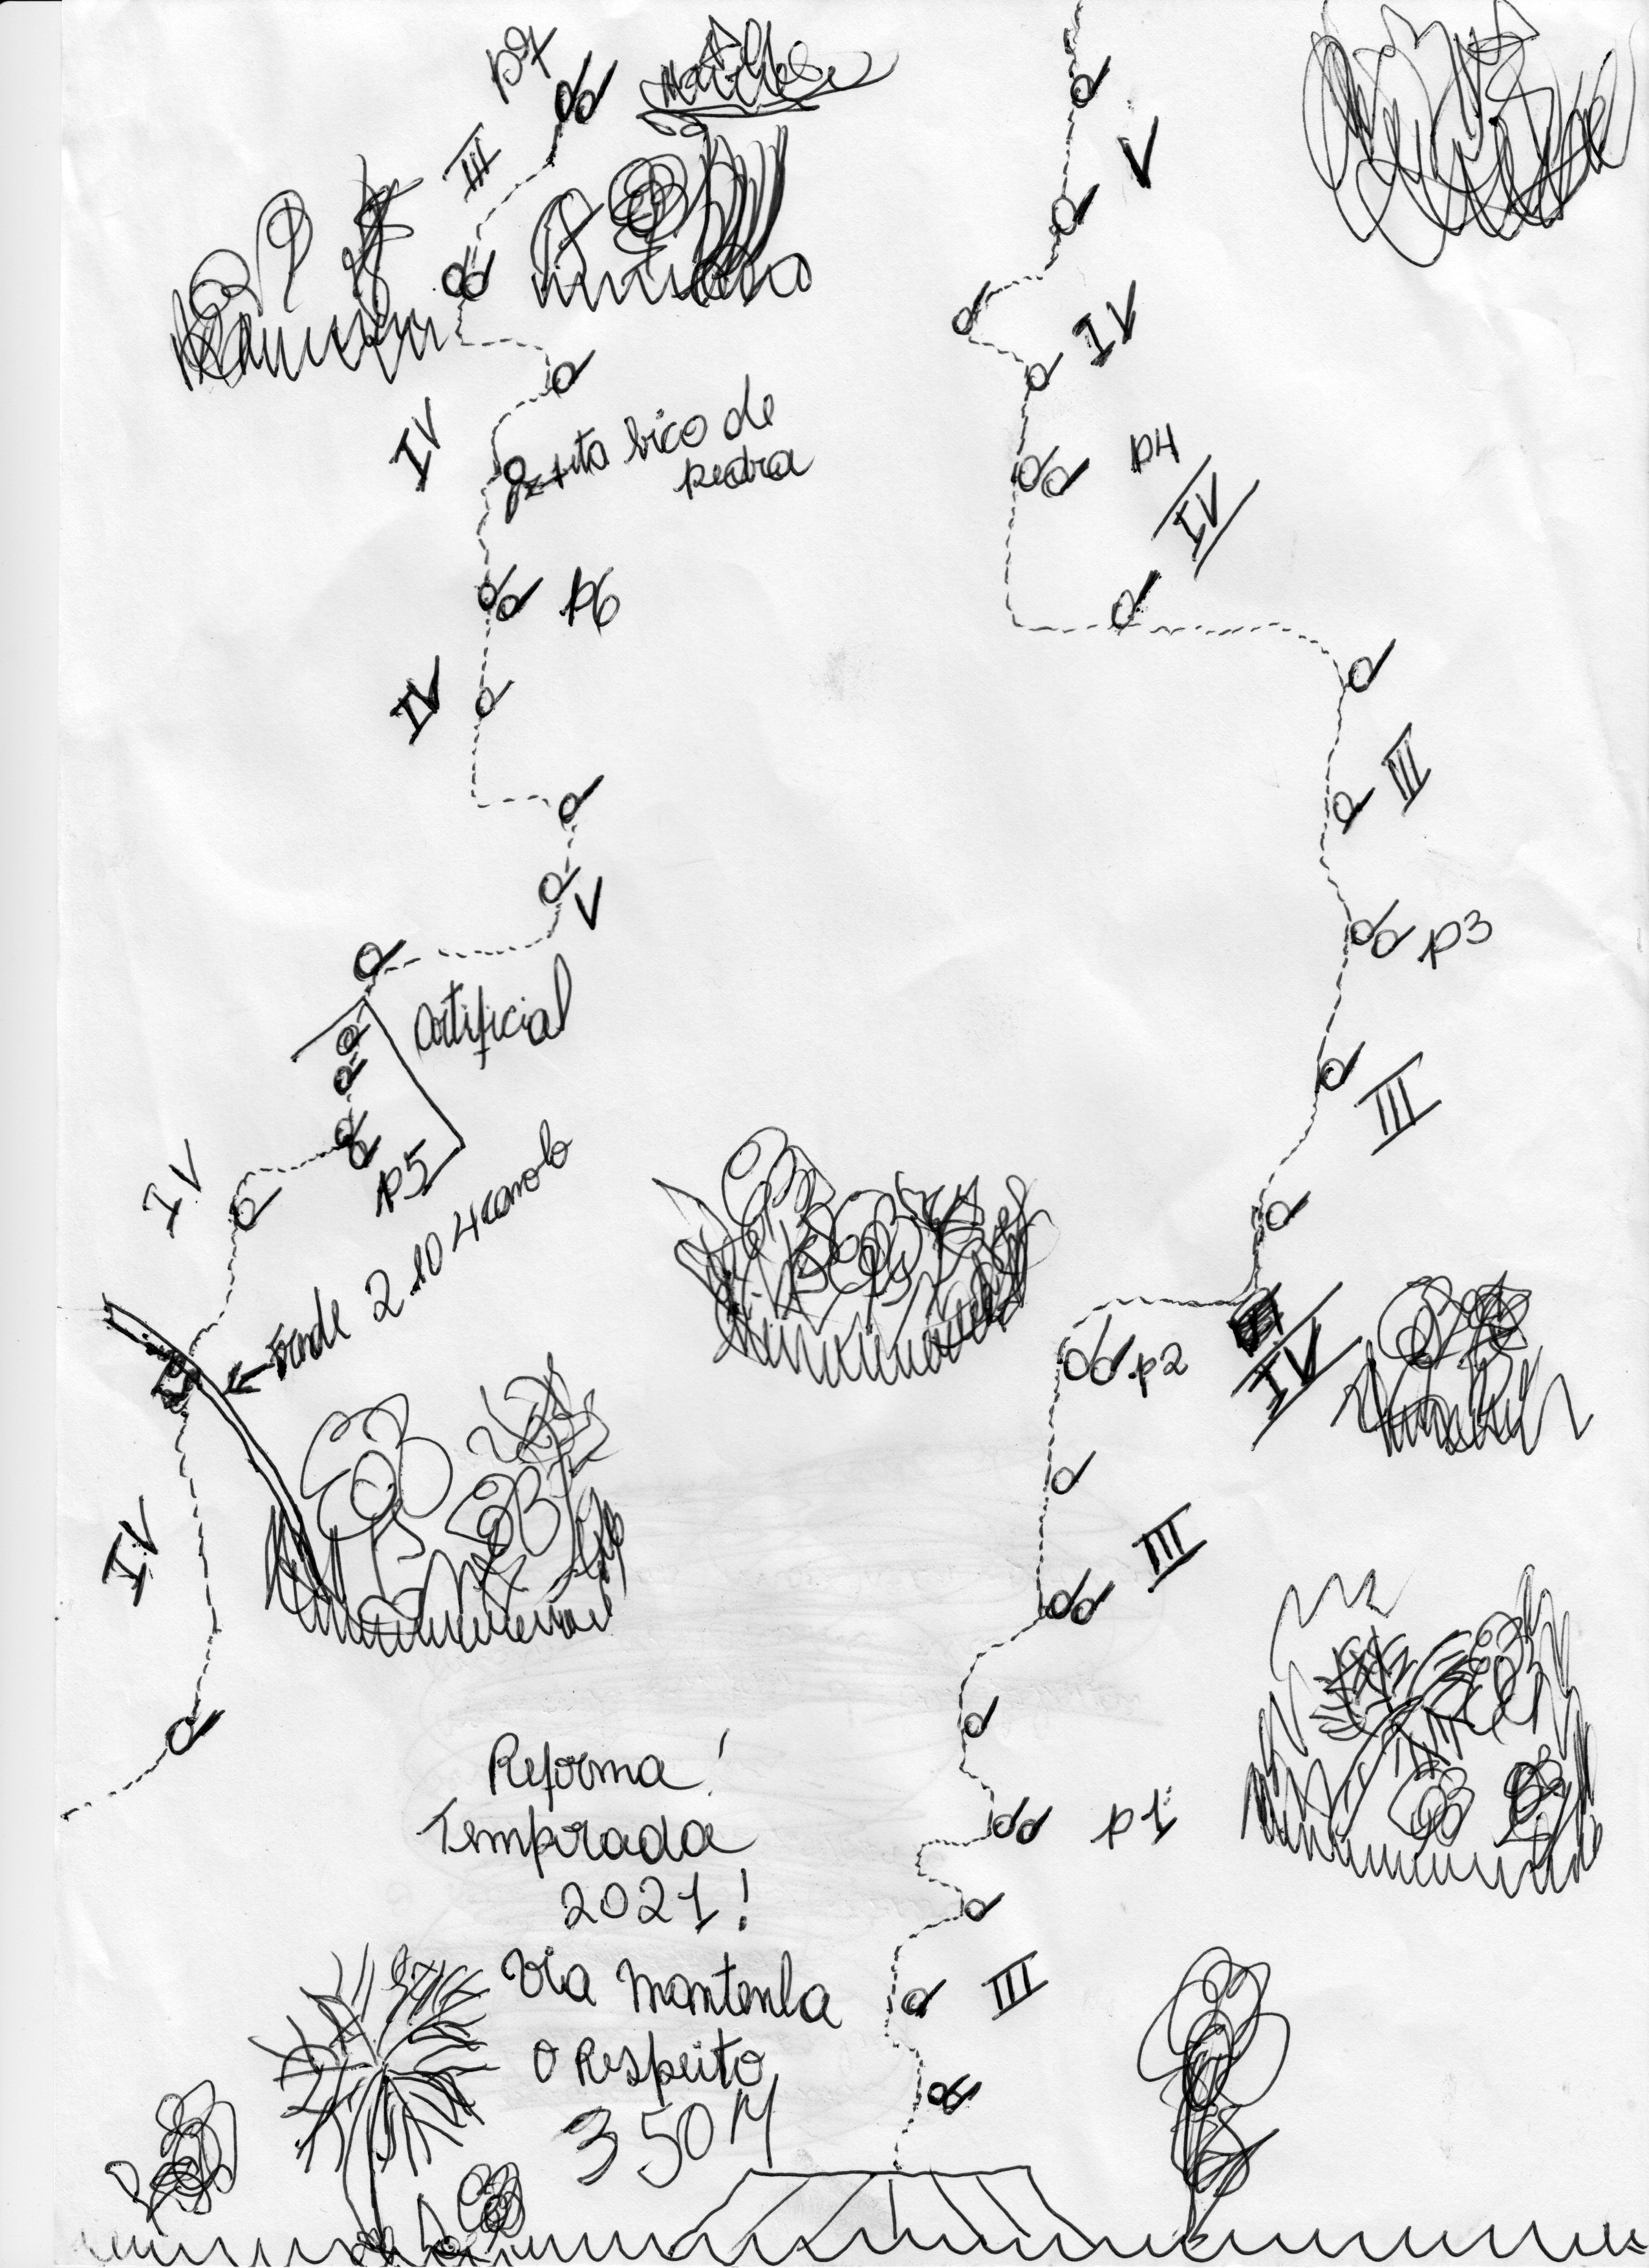 p7
III
IV
fita bico de
pedra
p6
IV
V
artificial
p5
IV
IV
Reforma!
Temporada
2021!
Via Mantenha
o Respeito
350M
V
IV
p4
IV
III
p3
III
p2
IV
III
p1
III